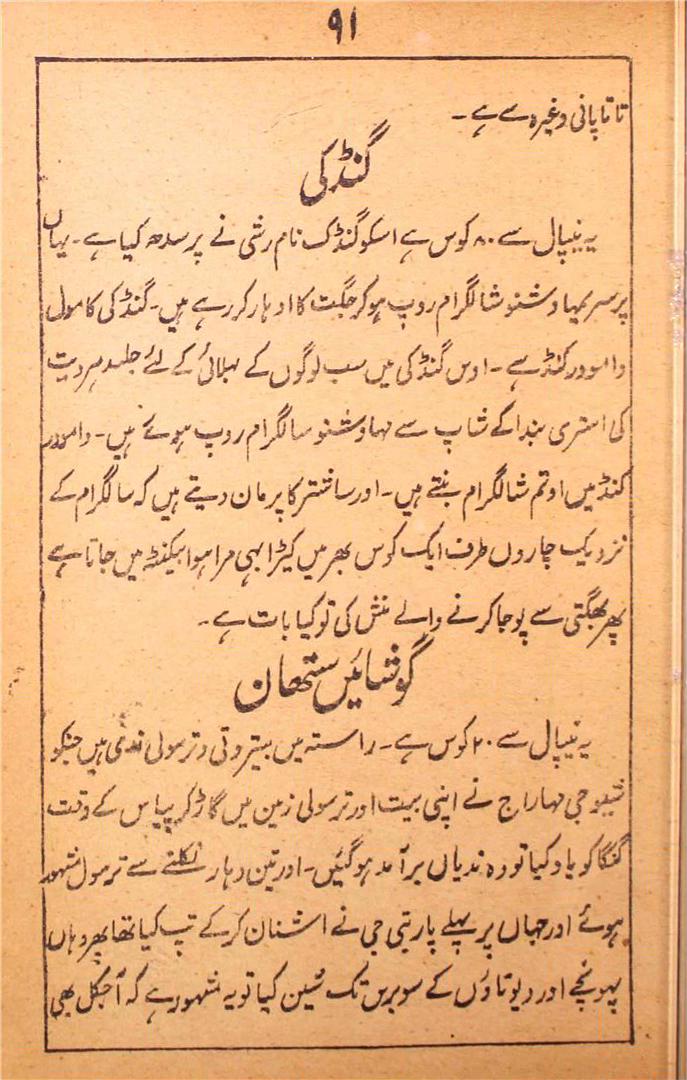 ۹۱
تاتا پانی وغیرہ سے ہے۔
گنڈکی
یہ نیپال سے ۸۰ کوس ہے اسکو گنڈک نام رشی نے پرسدھ کیا ہے۔ یہاں
پر سریمہا وشنو شالگرام روپ ہوکر جگت کا اودہار کر رہے ہیں۔ گنڈکی کا مول
دامودر کنڈ ہے۔ اوس گنڈکی میں سب لوگوں کے بہلائی کے لئے جلندہر دیت
کی استری بندا کے شاپ سے مہا وشنو سالگرام روپ ہوئے ہیں۔ دامودر
کنڈ میں اوتم شالگرام بنتے ہیں۔ اور ساشتر کا پرمان دیتے ہیں کہ سالگرام کے
نزدیک چاروں طرف ایک کوس بھر میں کیڑا بہی مرا ہوا بیکنٹھ میں جاتا ہے
پھر بھگتی سے پوجا کرنے والے منش کی تو کیا بات ہے۔
گوشائیں ستھان
یہ نیپال سے ۲۰ کوس ہے۔ راستہ میں بیتروتی و ترسولی ندی ہیں جنکو
شیوجی مہاراج نے اپنی بیت اور ترسولی زمین میں گاڑ کر پیاس کے وقت
گنگا کو یاد کیا تو وہ ندیاں برآمد ہو گئیں۔ اور تین دہار نکلنے سے ترسول مشہور
ہوئے اور جہاں پر پہلے پاربتی جی نے اشنان کر کے تپ کیا تھا پھر وہاں
پہونچے اور دیوتاؤں کے سو برس تک شین کیا تو یہ مشہور ہے کہ آجکل بھی